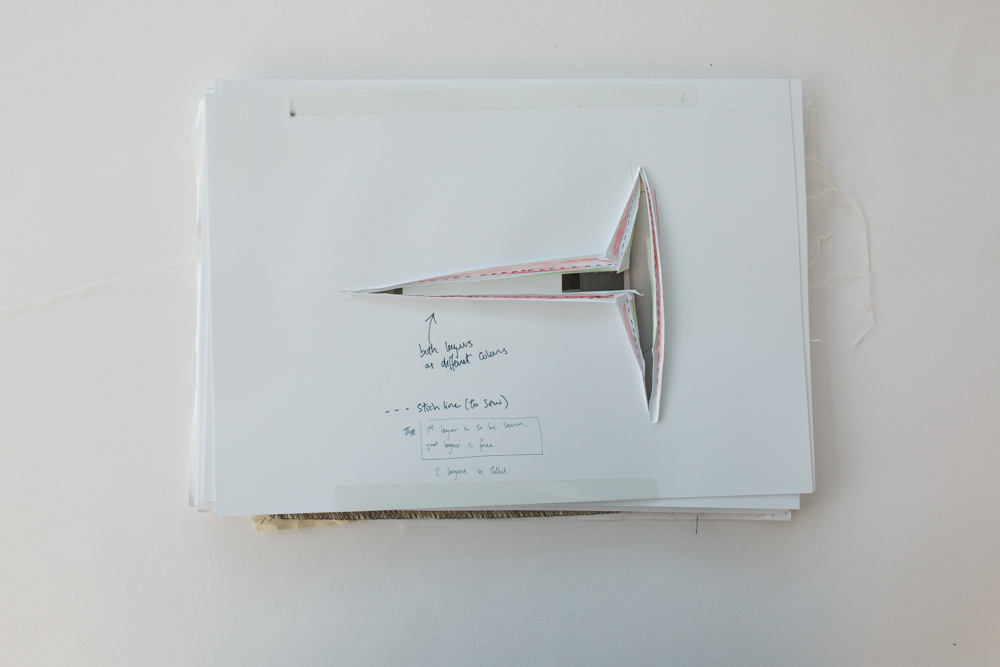 both layers
as different colours
--- stich line (to sew)
1st layer is to be sewn.
2nd layer is free
2 layers in total